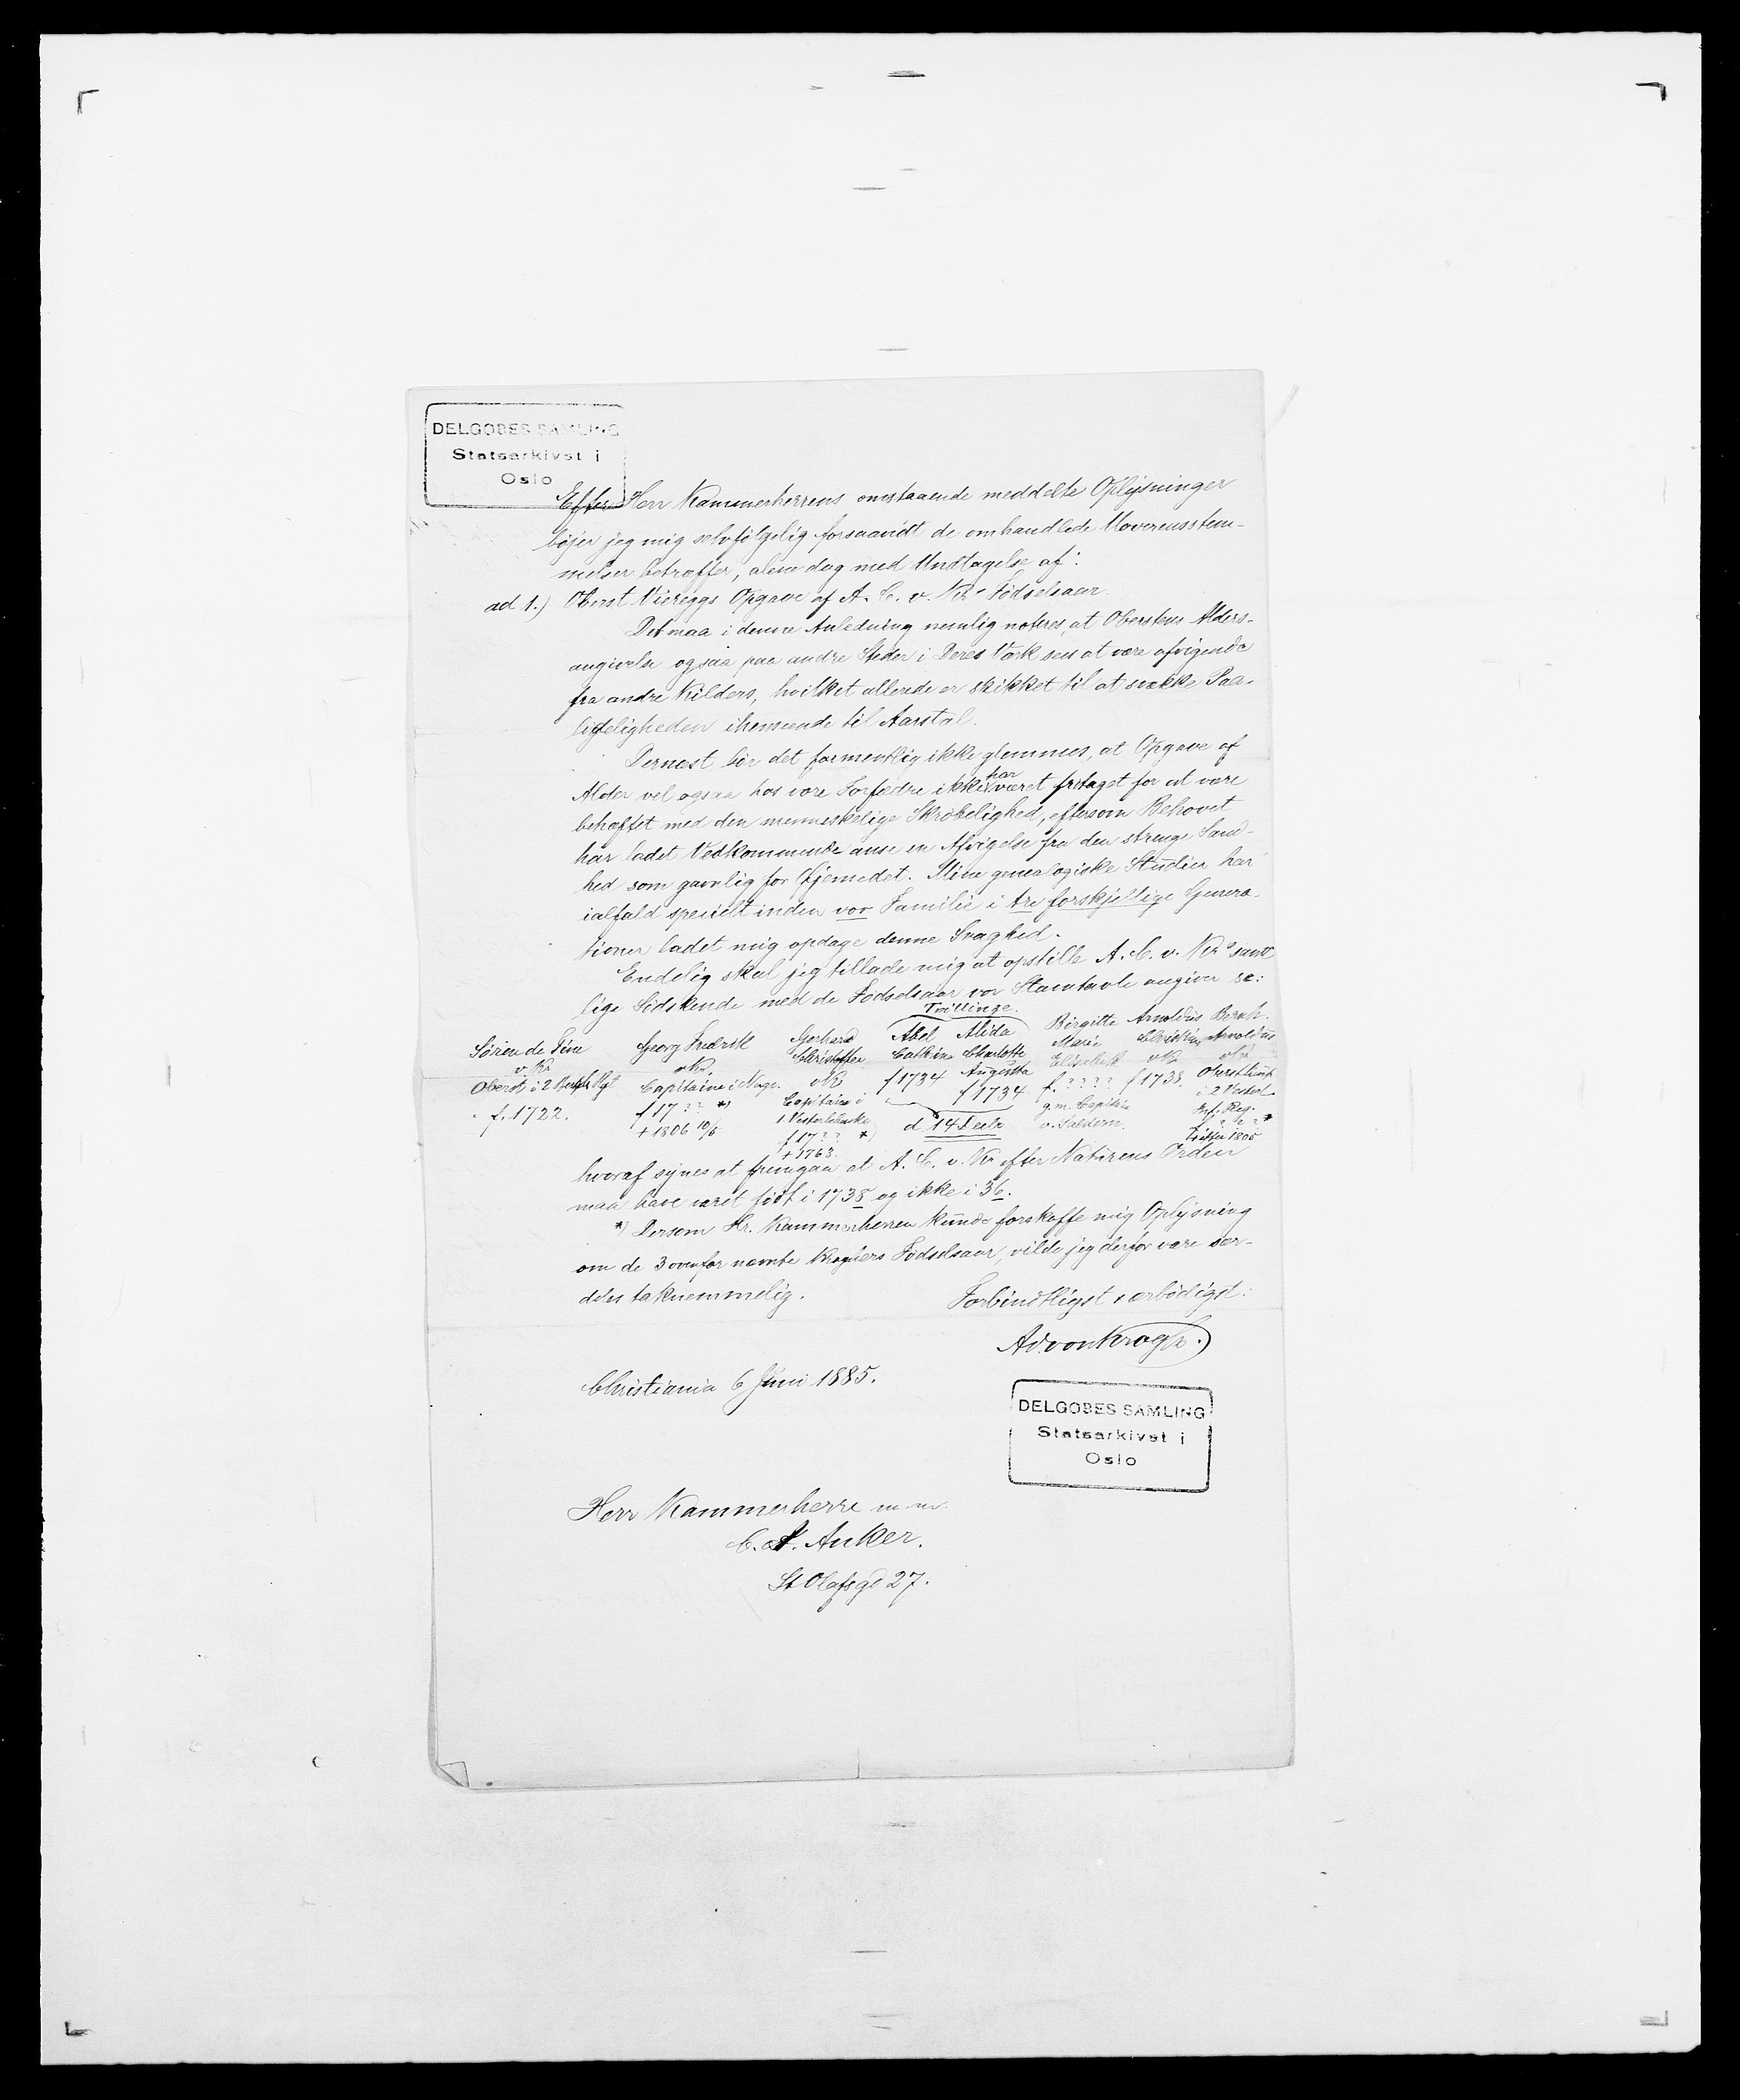 DELGOBES SAMLING
Statsarkivet i
Oslo
Efter Herr Kammerherrens omstaaende meddelte Oplysninger
bøjer jeg mig selvfølgelig forsaavidt de omhandlede Uoverensstem-
melser betræffer, alene dog med Undtagelse af:
ad 1.) Oberst Vüreggs Opgave af A. C. v. Krs Fødselsaar.
Det maa i denne Anledning nemlig noteres, at Oberstens Alders-
angivelse ogsaa paa andre Steder i Deres Værk sees at være afvigende
fra andre Kilders, hvilket allerede er skikket til at svække Paa-
lideligheden ihenseende til Aarstal.
Dernæst bør det formentlig ikke glemmes, at Opgave af
Alder vel ogsaa hos vore Forfædre ikke har været fritaget for at være
behæftet med den menneskelige Skrøbelighed, eftersom Behovet
har ladet Vedkommende anse en Afvigelse fra den strenge Sand-
hed som gavnlig for Øjemedet. Mine genealogiske Studier har
ialfald specielt inden vor Familie i tre forskjellige Genera-
tioner ladet mig opdage denne Svaghed.
Endelig skal jeg tillade mig at opstille A. C. v. Krs samt-
lige Sødskende med de Fødselsaar vor Stamtavle angiver sc:
Tvillinge.
Søren de Fine Georg Fredrik Gerhard Abel Alida Birgitte Arnoldus Bernh.
v. Kr v Kr. Christoffer Cathrine Charlotte Marie Christian Arnoldus
Oberst i 2 Bergh. Rgt Capitaine i Norge. v Kr f 1734 Augusta Elisabeth v Kr v Kr
f. 1722. f 17?? *) Capitaine i f 1734 f. ???? f 1738. Oberstløint
+ 1806 10/5 1. Vesterlehnske d 14 Decbr g. m. Capitain i 2 Vesterl.
f 17?? *) v. Saldern. Inf. Reg.
+ 1763. f ? ? ? *
1805
hvoraf synes at fremgaa at A. C. v. Kr efter Naturens Orden
maa have været født i 1738 og ikke i 36.
*) Dersom Hr. Kammerherren kunde forskaffe mig Oplysning
om de 3 ovenfor nævnte Kroghers Fødselsaar, vilde jeg derfor være sær-
deles taknemmelig.
Forbindtligst & ærbødigst:
Ad. von Krogh.
Christiania 6 Juni 1885.
DELGOBES SAMLING
Statsarkivet i
Oslo
Herr Kammerherre m. m.
C. A. Anker.
St Olafs gd 27.